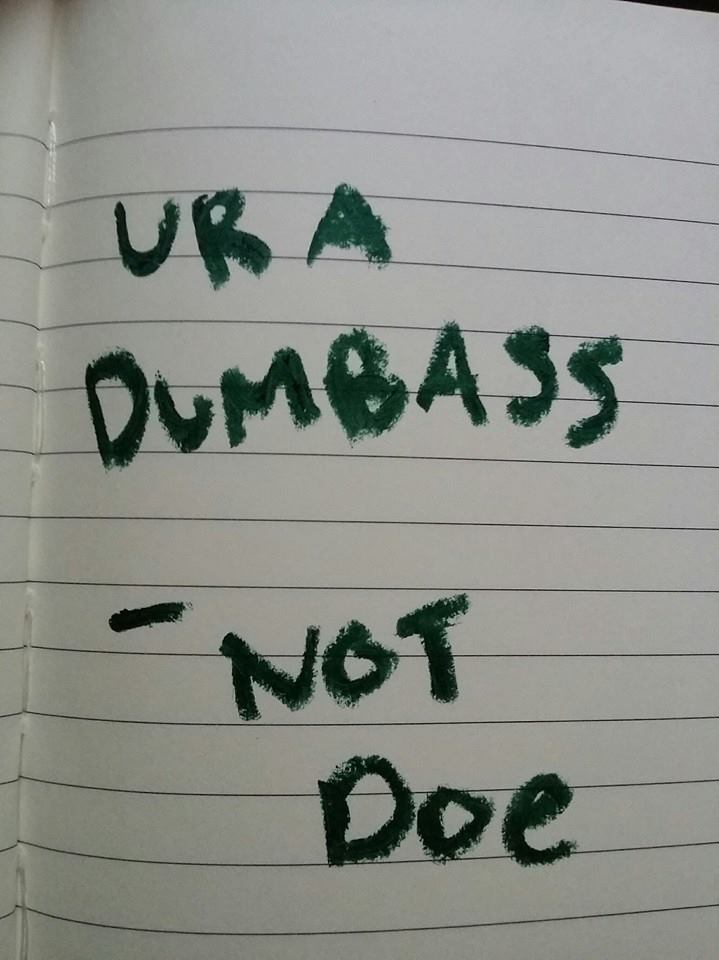 UR A
DUMBASS
- NOT
Doe